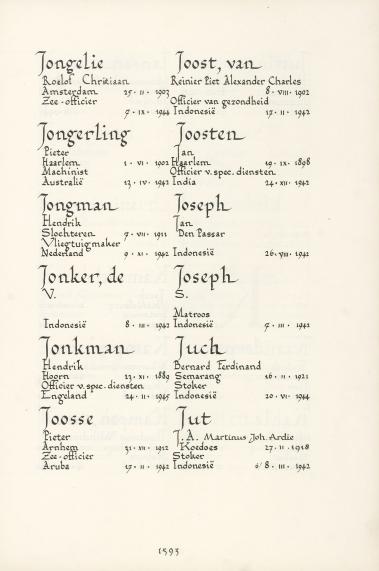 Jongelie
Roelof Christiaan
Amsterdam 25 · 11 · 1903
Zee-officier
7 · IX · 1944
Jongerling
Pieter
Haarlem 1 · VI · 1902
Machinist
Australië 13 · IV · 1942
Jongman
Hendrik
Slochteren 7 · VII · 1911
Vliegtuigmaker
Nederland 9 · XI · 1942
Jonker, de
V.
Indonesië 8 · III · 1942
Jonkman
Hendrik
Hoorn 23 · XI · 1889
Officier v. spec. diensten
Engeland 24 · II · 1945
Joosse
Pieter
Arnhem 31 · XII · 1912
Zee-officier
Aruba 17 · II · 1942
Joost, van
Reinier Piet Alexander Charles
8 · VIII · 1902
Officier van gezondheid
Indonesië 17 · II · 1942
Joosten
Jan
Haarlem 19 · IX · 1898
Officier v. spec. diensten
India 24 · XII · 1942
Joseph
Jan
Den Passar
Indonesië 26 · VIII · 1942
Joseph
S.
Matroos
Indonesië 7 · III · 1942
Juch
Bernard Ferdinand
Semarang 16 · II · 1921
Stoker
Indonesië 20 · VI · 1944
Jut
J. A. Martinus Joh. Ardie
Koedoes 27 · 11 · 1918
Stoker
Indonesië 6/8 · III · 1942
1593